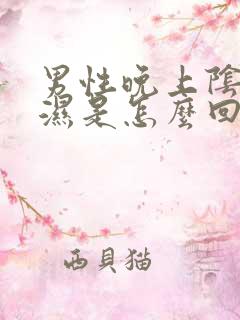 男性晚上陰
濕是怎麼回
西貝猫